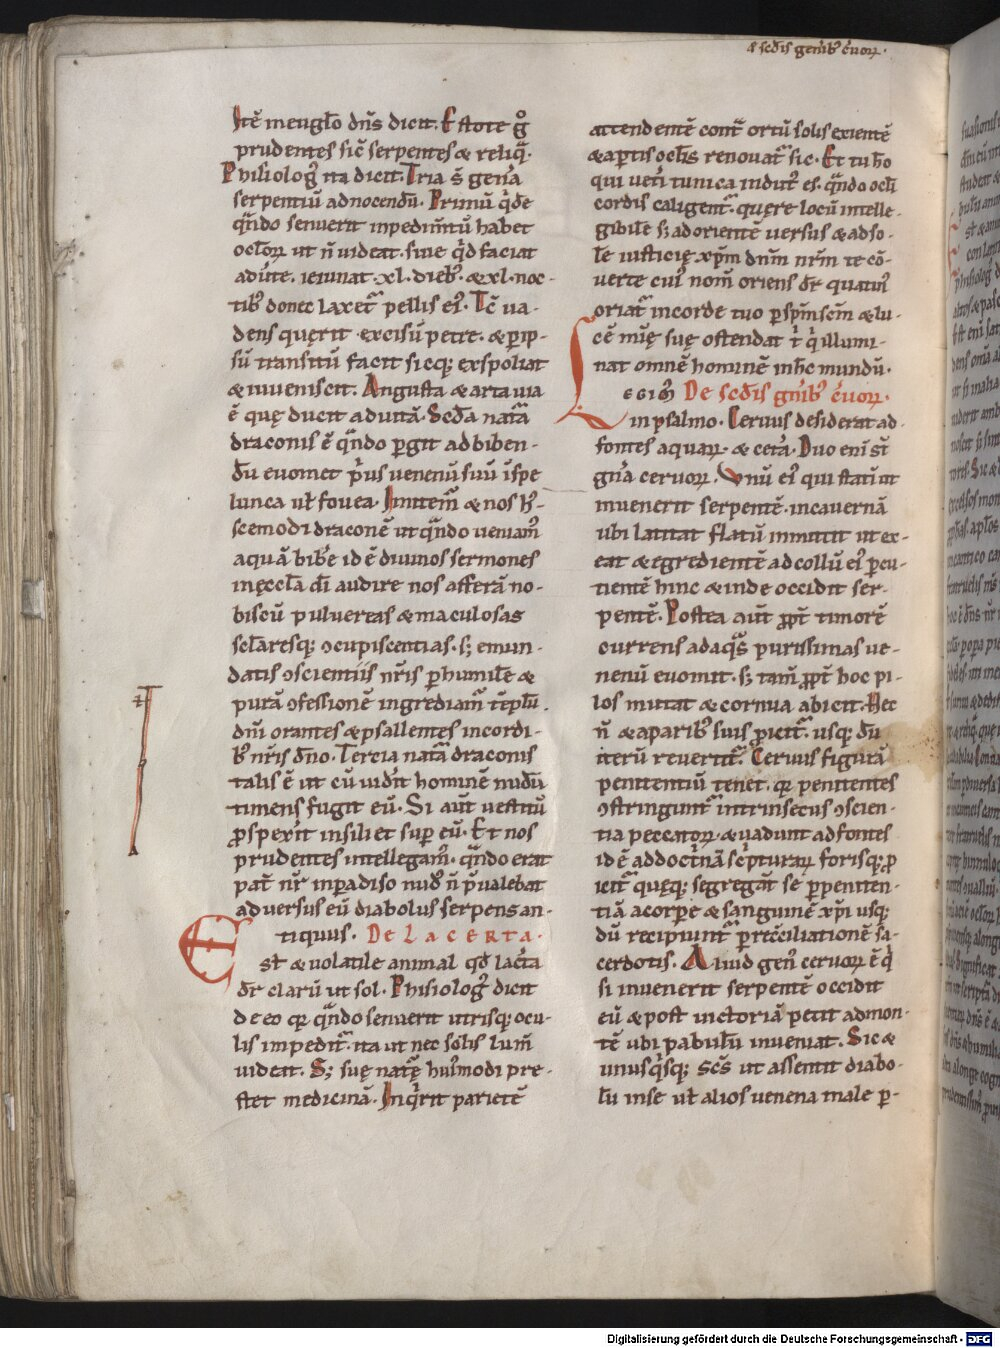 ⁊ scdis genib; cuoꝝ.
Itē in euglō dn̄s dicit. Estote gͦ
prudentes sic̄ serpentes & reliq̄.
Phisiolog᷒ ita dicit. Tria s̄ genͣa
serpentiū ad nocendū. Primū qͥde
qn̄do senuerit inpedim̄tū habet
oclōꝝ ut n̄ uideat. siue qͥd faciat
aduͥte. ieiunat .xl. dieb᷒. & .xl. noc-
tib᷒ donec laxet᷑ pellis ei᷒. Tc̄ ua-
dens querit excisū petrę. & p ip-
sū transitū facit sicq; exspoliat
& iuueniscit. Angusta & arta uia
ē quę ducit ad uitā. Scd̄a natͣa
draconis ē qn̄do pergit ad biben-
dū euomet pͥus uenenū suū ī spe
lunca ut̄ fouea. Imitem᷑ & nos h᷒-
scemodi draconē ut qn̄do ueniam᷒
aquā bibͤe id ē diuinos sermones
in ęccl̄a dī audire nos afferā no-
biscū pulvereas & maculosas
sclāresq; ꝯcupiscentias. s; emun-
datis ꝯscientiis nr̄is p humilē &
purā ꝯfessionē ingrediam᷑ tēplū.
dn̄i orantes & psallentes in cordi-
b᷒ nr̄is dn̄o. Tercia natͣa draconis
talis ē ut cū uidͥit hominē nudū
timens fugit eū. Si aut̄ uestitū
ꝓspexͥit insiliet supͤ eū. Et nos
prudentes intellegam᷒. qn̄do erat
pat᷑ nr̄ in paradiso nud᷒ n̄ p̄ualebat
aduersus eū diabolus serpens an-
tiquus. De Lacerta.
Est & uolatile animal qd̄ lac̄ta
dr̄ clarū ut sol. Phisiolog᷒ dicit
de eo qꝫ qn̄do senuerit utrisq; ocu-
lis impedit᷑. ita ut nec solis lum̄
uideat. S; suę natͣę hui᷒modi pre-
stet medicinā. Inqͥrit parietē
attendentē contͣ ortū solis exientē
& apertis oclis renouat᷑ sic. Et tu hō
qui vetͥi tunica indut᷒ es. qn̄do oclī
cordis caligent᷑. quere locū intelle-
gibilē s; ad orientē uersus & ad so-
lē iusticię xp̄m dn̄m nr̄m te cō-
uerte cui᷒ nom̄ oriens dr̄ quatin᷒
oriat᷑ in corde tuo p sp̄m scm̄ & lu-
cē mīę suę ostendat tͥ qͥ illumi-
nat omnē hominē in hc mundū.
Legim᷒ De scd̄is gnͥib᷒ c᷒uoꝝ.
in psalmo. Ceruus desiderat ad
fontes aquaꝝ. & cetͣa. Duo enī st̄
gnͣa ceruoꝝ. Vnū ei᷒ qui statī ut
inuenerit serpentē. in cauernā
ubi latitat flatū inmittit ut ex-
eat & egredientē ad collū ei᷒ pcu-
tientē hinc & inde occidit ser-
pentē. Postea aut̄ ꝓpt̄ timorē
currens ad aqͣs purissimas ue-
nenū euomit. s; tam̄ ꝓpt̄ hoc pi-
los mutat & cornua abicit. Nec
n̄ & a parib᷒ suis ꝓicit᷑. usq; dū
iterū reuertit᷑. Ceruus figurā
penitentiū tenet. qꝫ penitentes
ꝯstringunt᷑ intrinsecus ꝯscien-
tia peccatoꝝ. & uadunt ad fontes
id ē ad doctͥnā sc͛pturaꝝ forisq; ꝓ
icit᷑ quęq; segregāt se p peniten-
tiā a corpͤe & sanguinē xp̄i usq;
dū recipiunt᷑ p rec̄ciliationē sa-
cerdotis. Aliud gen᷒ ceruoꝝ ē qͥ
si inuenerit serpentē occidit
eū & post uictoriā petit ad mon-
tē ubi pabulū inueniat. Sic &
unusqͥsq; sc̄s ut assentit diabo-
lū in se ut̄ alios uenena male p-
Digitalisierung gefördert durch die Deutsche Forschungsgemeinschaft - DFG